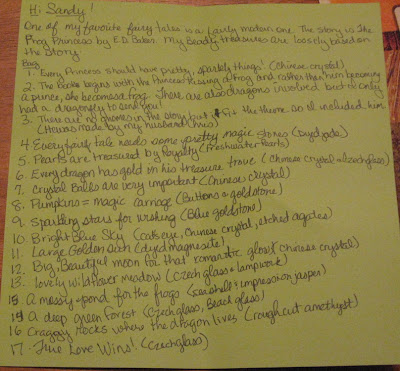 Hi Sandy!
One of my favorite fairy tales is a fairly modern one. The story is The
Frog Princess by E.D. Baker. My beady treasures are loosely based on
the Story.
Bag
1. Every Princess should have pretty, sparkly things! (Chinese crystal)
2. The book begins with the Princess kissing a frog and rather than him becoming
a prince, she becomes a frog. There are also dragons involved but I only
had a dragonfly to send you!
3. There are no gnomes in the story but fit the theme so I included him
(He was made by my husband)
4. Every fairy tale needs some pretty magic stones (Dyd jade)
5. Pearls are treasured by Royalty (Freshwater Pearls)
6. Every dragon has gold in his treasure trove (Chinese crystal + czech glass)
7. Crystal Balls are very important (Chinese crystal)
8. Pumpkins = magic carriage (Buttons & goldstone)
9. Sparkling stars for wishing (Blue goldstone)
10. Bright Blue Sky (cats eye, Chinese crystal, etched agates)
11. Large Golden Oath (dyed magnesite)
12. Big, Beautiful moon for that romantic glow (Chinese crystal)
13. lovely wildflower meadow (czech glass & lampwork)
15 A mossy pond for the frogs (sea shell & impression jasper)
14 A deep green forest (Czech glass, Beach glass)
16. Craggy Rocks where the dragon lives (rough cut amethyst)
17. True Love Wins! (czech glass)